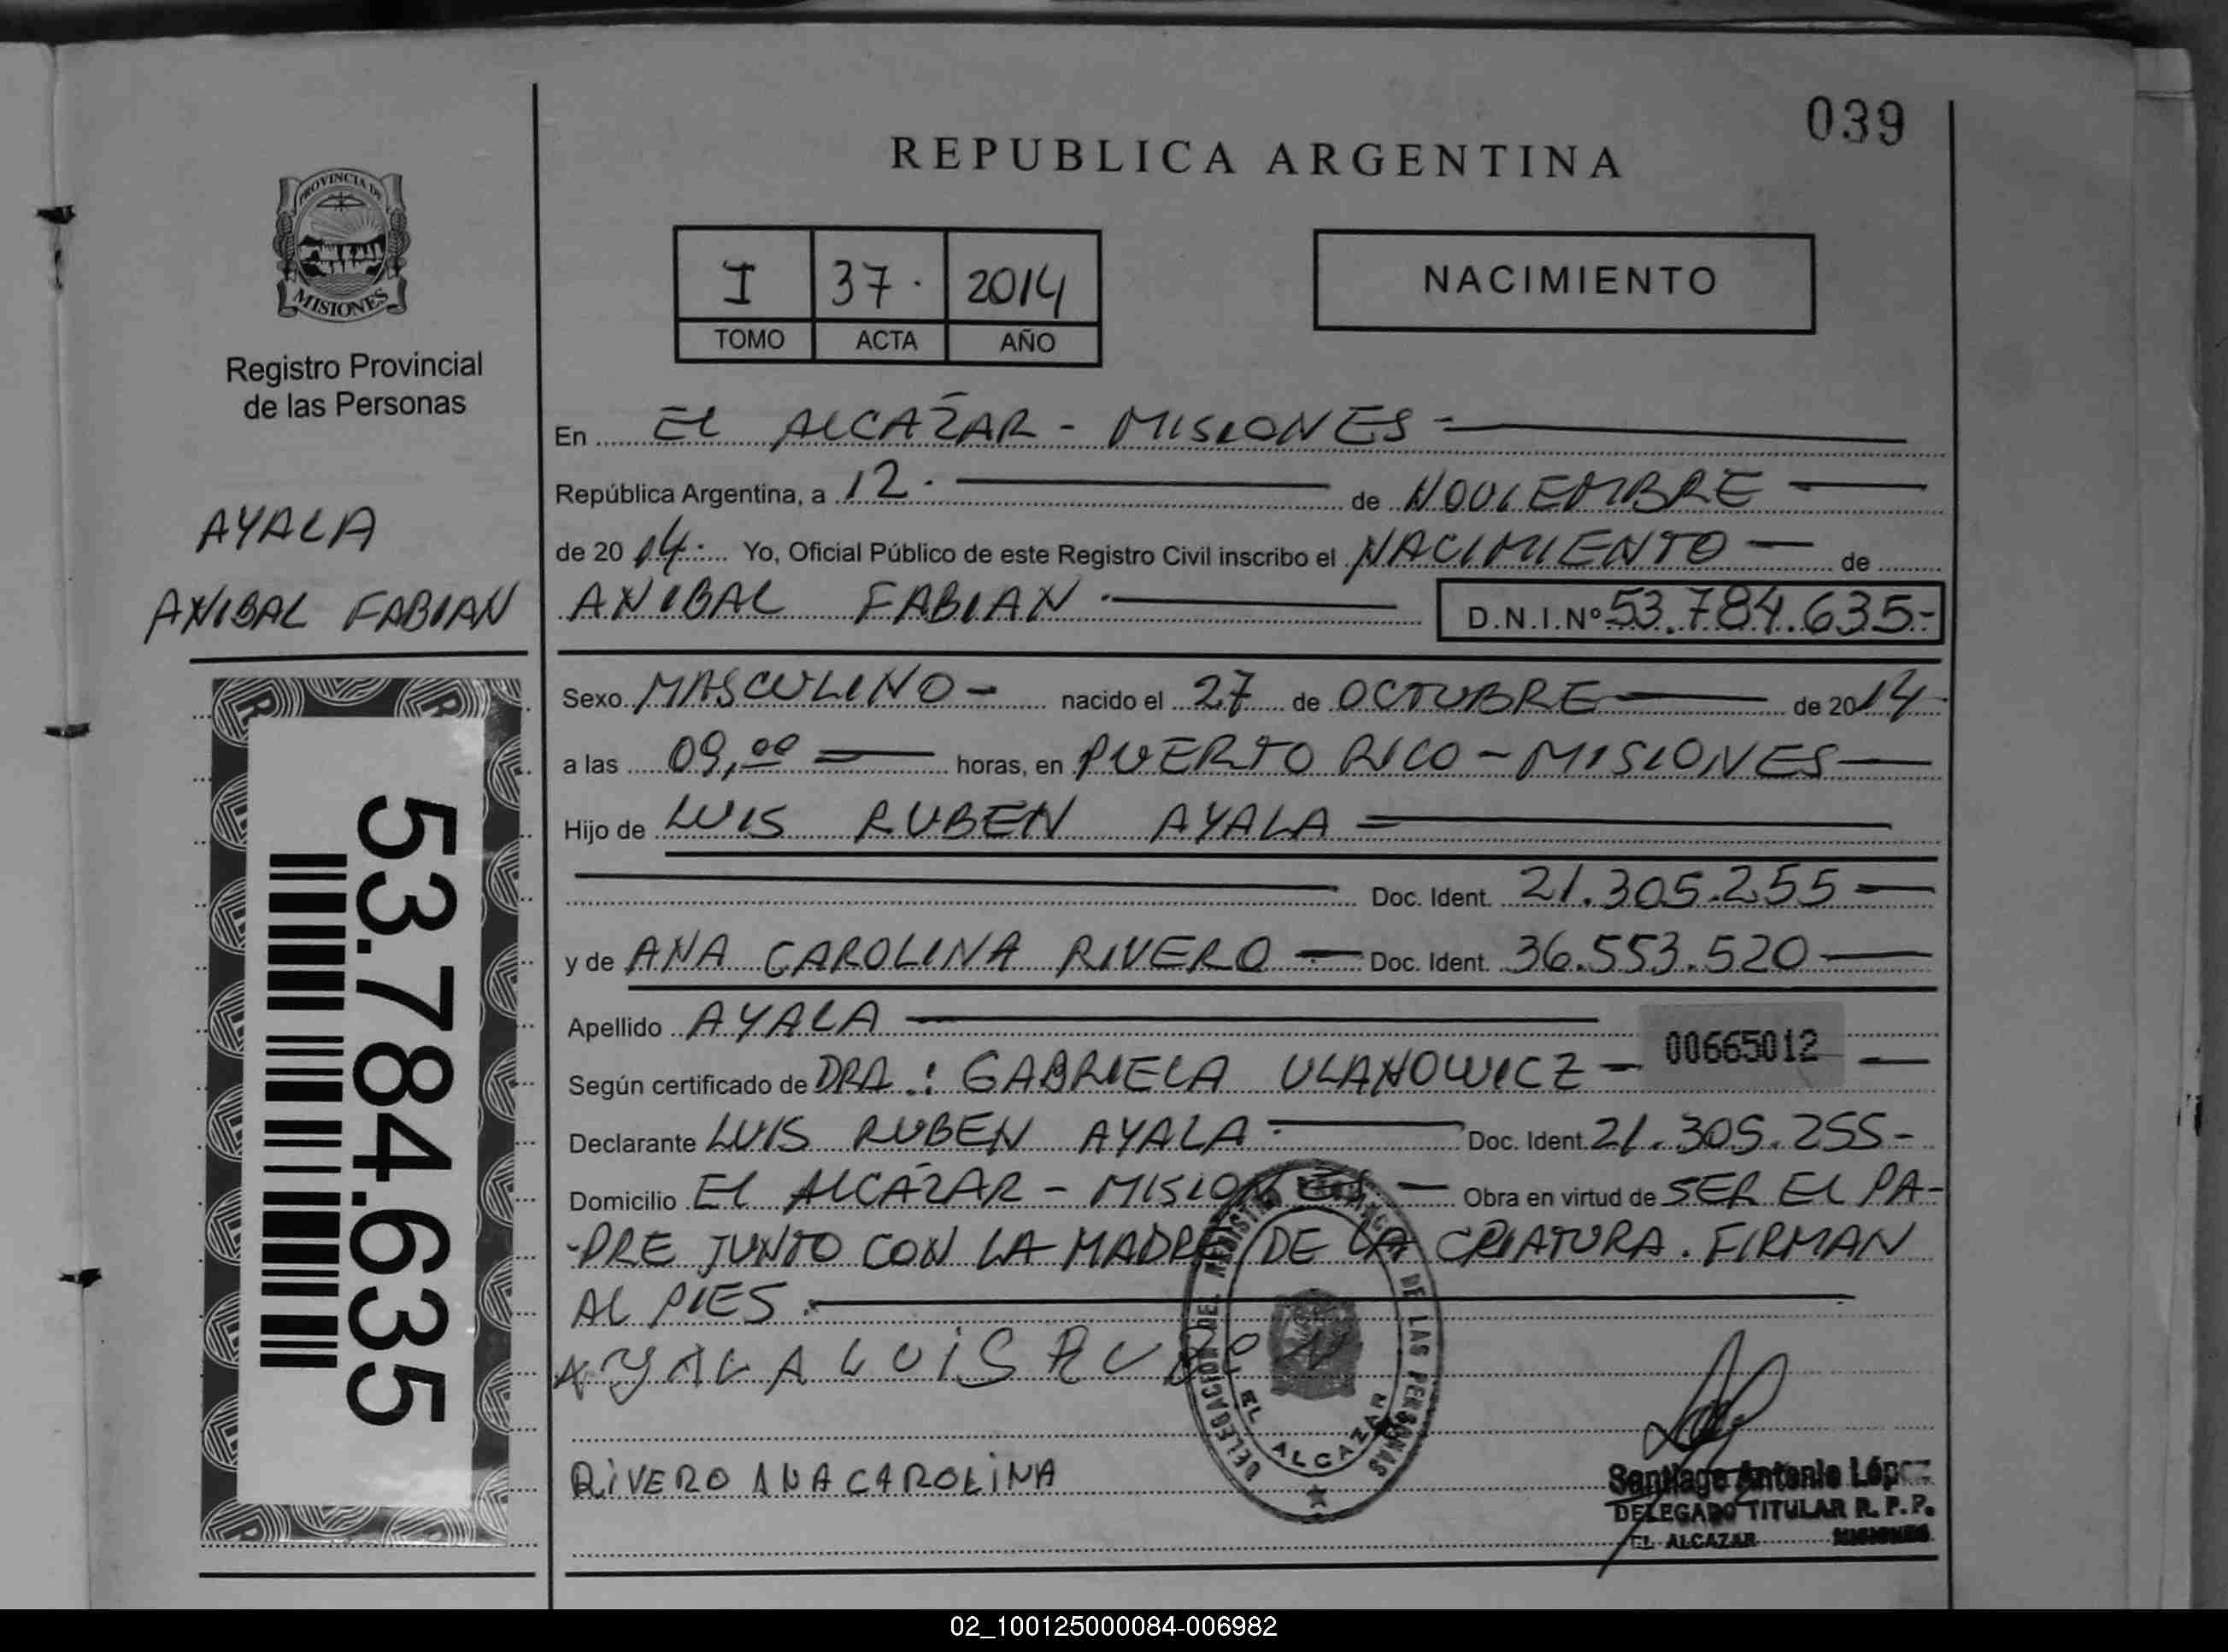 039
REPUBLICA ARGENTINA
PROVINCIA DE
MISIONES
Registro Provincial
de las Personas
AYALA
ANIBAL FABIAN
53.784.635
I 37. 2014
TOMO ACTA AÑO
NACIMIENTO
En EL ALCAZAR - MISIONES -
República Argentina, a 12. de NOVIEMBRE
de 2014. Yo, Oficial Público de este Registro Civil inscribo el NACIMIENTO de
ANIBAL FABIAN D.N.I.Nº 53.784.635-
Sexo MASCULINO - nacido el 27 de OCTUBRE de 2014
a las 09,00 horas, en PUERTO RICO - MISIONES
Hijo de LUIS RUBEN AYALA
Doc. Ident. 21.305.255
y de ANA CAROLINA RIVERO Doc. Ident. 36.553.520
Apellido AYALA
00665012
Según certificado de DRA.: GABRIELA ULANOWICZ -
Declarante LUIS RUBEN AYALA Doc. Ident. 21.305.255-
Domicilio EL ALCAZAR - MISIONES Obra en virtud de SER EL PA-
-DRE JUNTO CON LA MADRE DE LA CRIATURA. FIRMAN
AL PIES.
AYALA LUIS RUBEN
RIVERO ANA CAROLINA
DELEGACION DEL REGISTRO PROVINCIAL DE LAS PERSONAS
EL ALCAZAR
Santiago Antonio López
DELEGADO TITULAR R. P. P.
EL ALCAZAR MISIONES
02_100125000084-006982